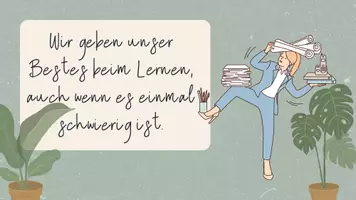 Wir geben unser
Bestes beim Lernen,
auch wenn es einmal
schwierig ist.